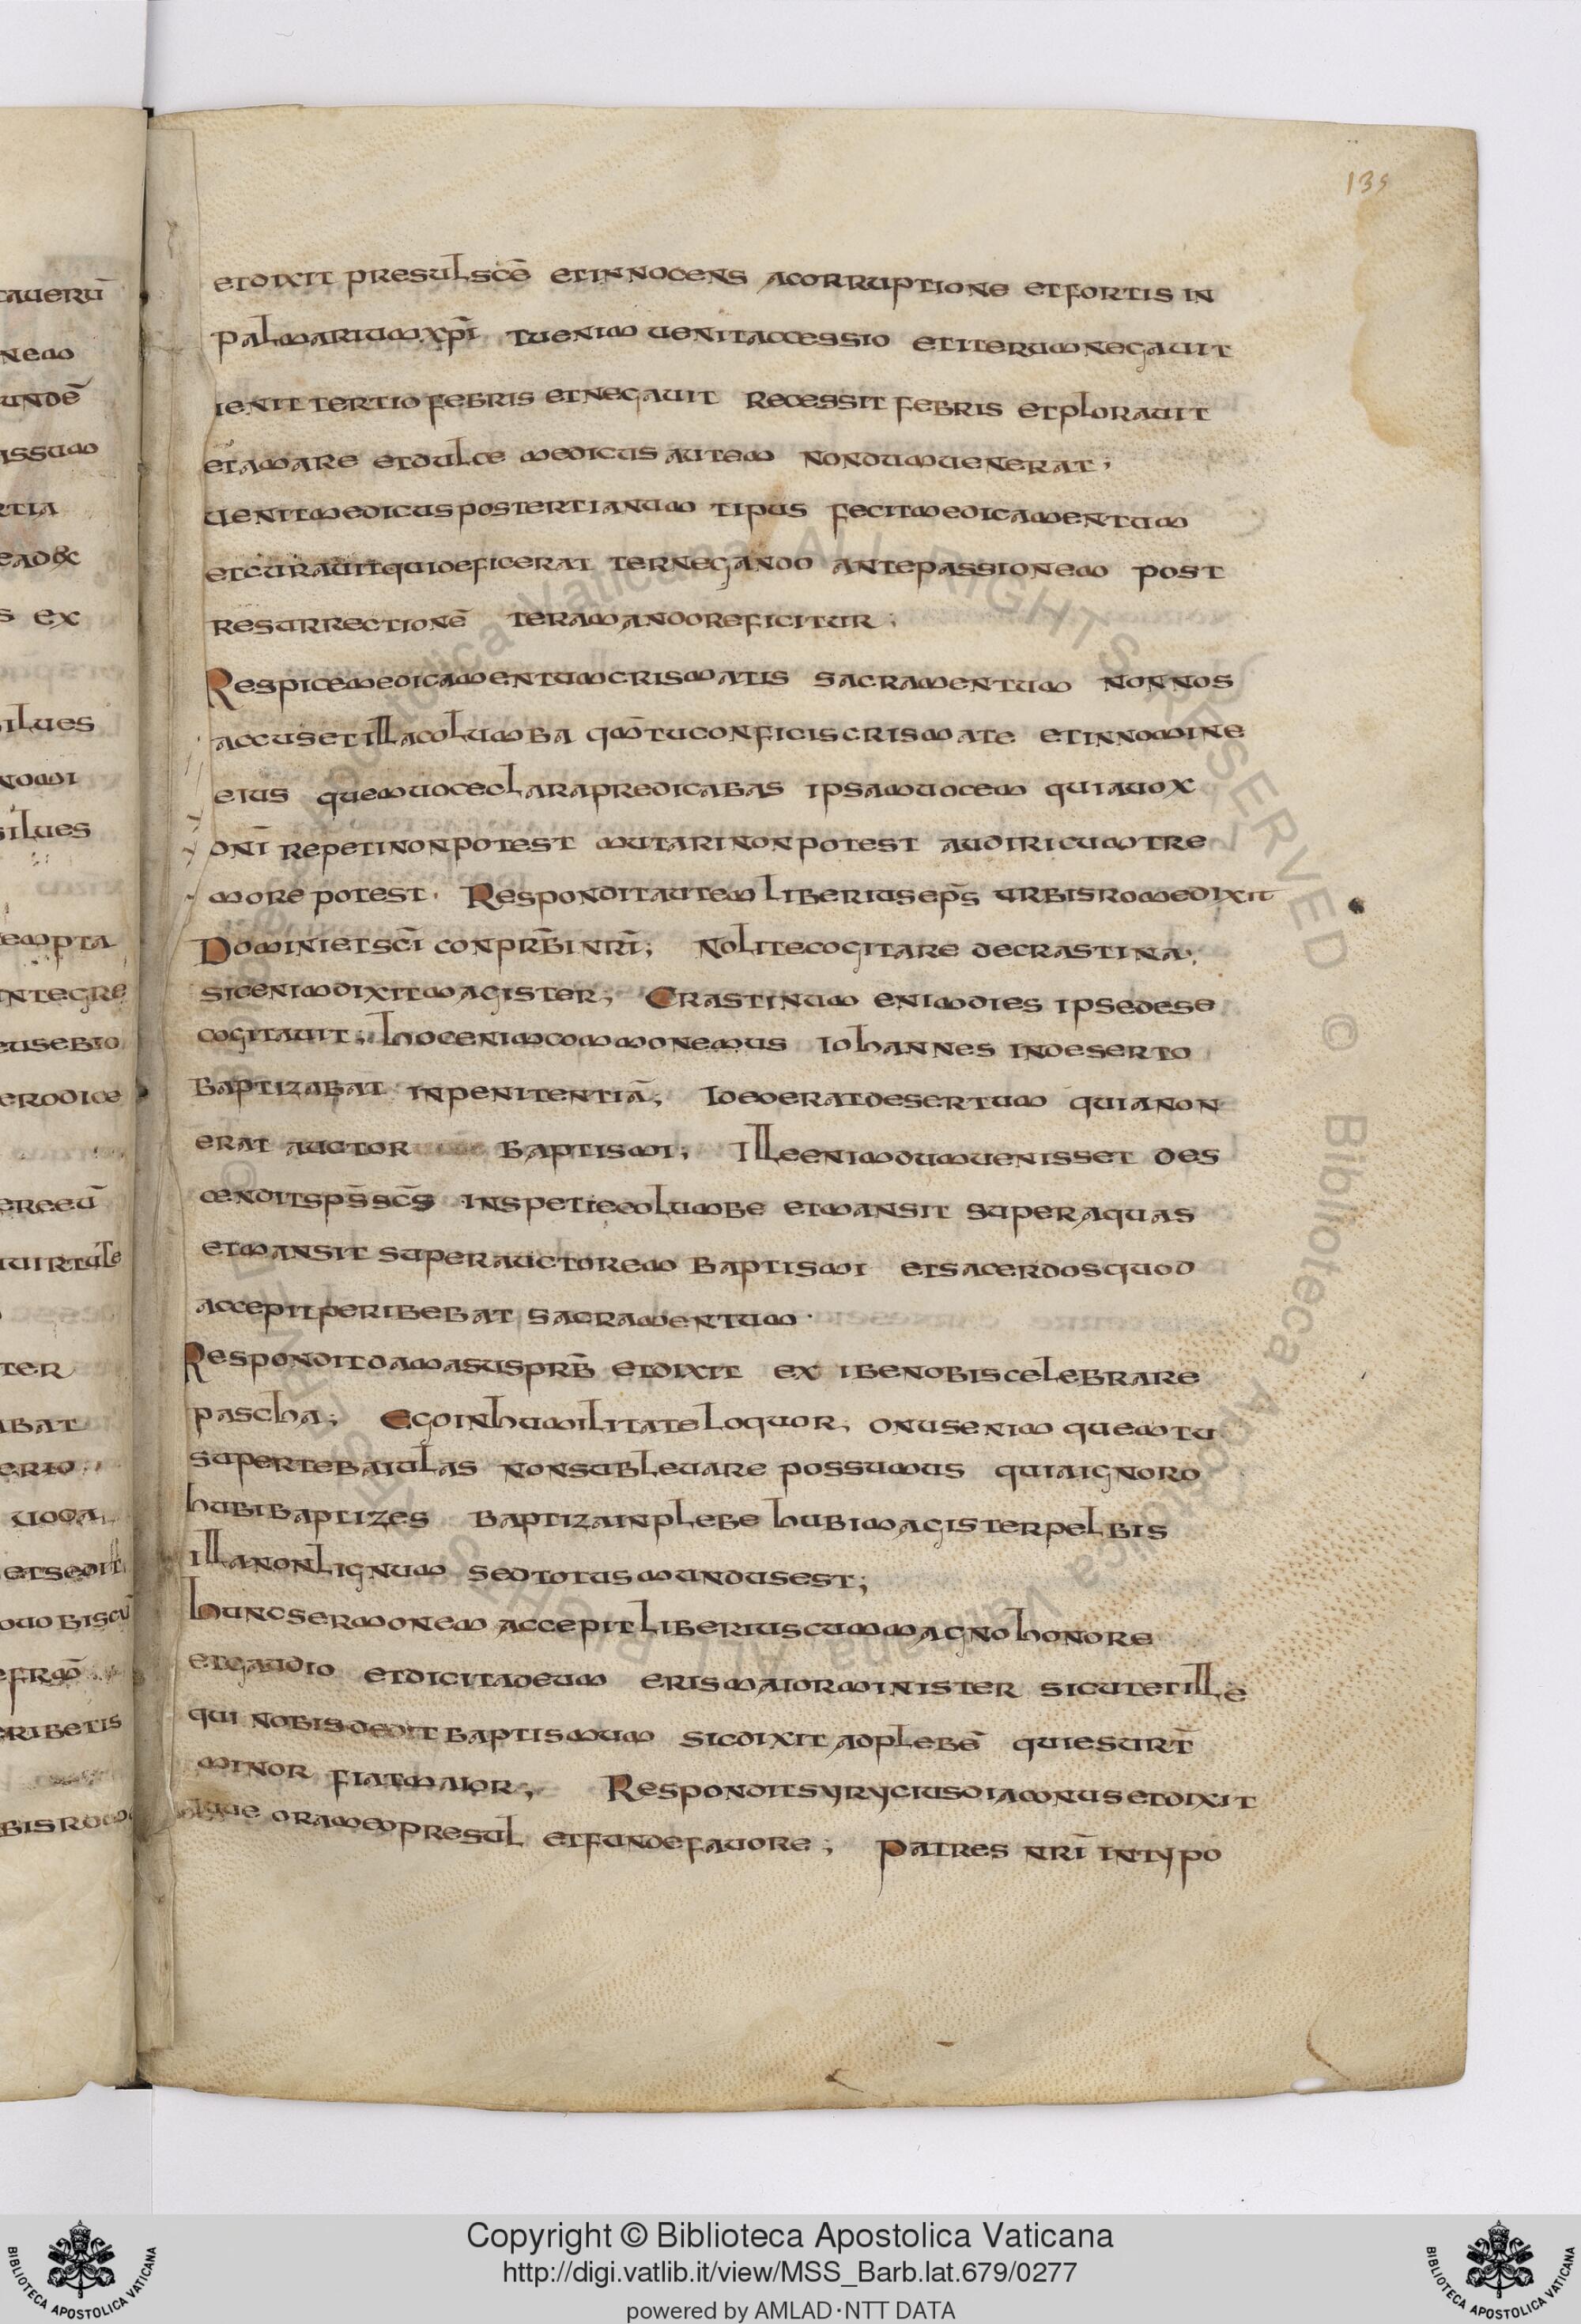 135
et dixit presul scē et innocens a corruptione et fortis in
palmarium xp̄i tu enim uenit accessio et iterum negauit
uenit tertio febris et negauit recessit febris et plorauit
et amare et dulce medicus autem nondum uenerat;
uenit medicus post tertianum tipus fecit medicamentum
et curauit qui deficerat ter negando ante passionem post
resurrectionē ter amando reficitur;
Respice medicamentum crismatis sacramentum non nos
accuset illa columba qm̄ tu conficis crismate et in nomine
eius quem uoce clara predicabas ipsam uocem quia uox
dn̄i repeti non potest mutari non potest audiri cum tre
more potest. Respondit autem liberius ep̄s urbis rome dixit
Domini et sc̄i conprb̄i nr̄i; Nolite cogitare de crastina;
sic enim dixit magister; Crastinum enim dies ipse de se
cogitauit; hoc enim commonemus Iohannes in deserto
baptizabat in penitentiā; Ideo erat desertum quia non
erat auctor baptismi; Ille enim dum uenisset des
cendit sp̄s sc̄s in spetie columbe et mansit super aquas
et mansit super auctorem baptismi et sacerdos quod
accepit peribebat sacramentum.
Respondit damasus prb̄ et dixit ex ibe nobis celebrare
pascha; Ego in humilitate loquor, onus enim quem tu
super te baiulas non subleuare possumus quia ignoro
hubi baptizes baptiza in plebe hubi magister pelbis
illa non lignum sed totus mundus est;
hunc sermonem accepit liberius cum magno honore
et gaudio et dicit ad eum eris maior minister sicut et ille
qui nobis dedit baptismum sic dixit ad plebē qui esurt̄
minor fiat maior; Respondit syrycius diaconus et dixit
ora mempresul et funde fauore; Patres nr̄i in typo
tauerū
nem
undē
issum
rtia
ead&
s ex
silues
nomi
silues
empta
integre
eusebio
erodice
erceū
uirtute
ter
abat
erio
uoca
et sed ill
duobis cū
e frm̄
eribetis
bis rome
Copyright © Biblioteca Apostolica Vaticana
http://digi.vatlib.it/view/MSS_Barb.lat.679/0277
powered by AMLAD·NTT DATA
BIBLIOTECA APOSTOLICA VATICANA
BIBLIOTECA APOSTOLICA VATICANA
© Biblioteca Apostolica Vaticana ALL RIGHTS RESERVED © Biblioteca Apostolica Vaticana ALL RIGHTS RESERVED